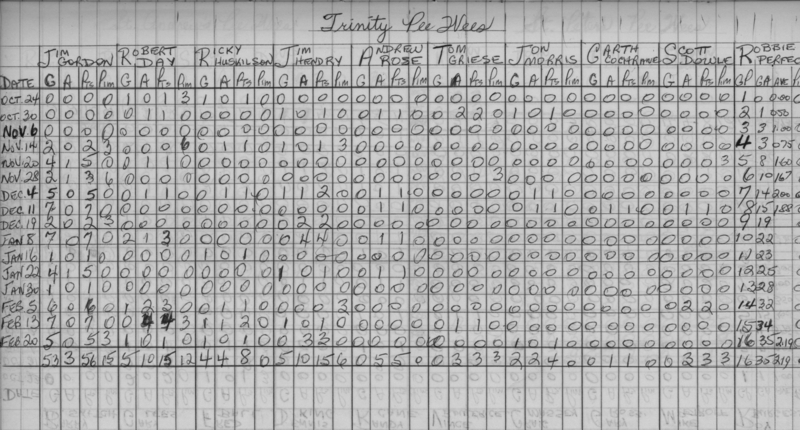 Trinity Pee Wees
JIM GORDON ROBERT DAY RICKY HUSKILSON JIM HENDRY ANDREW ROSE TOM GRIESE JON MORRIS GARTH COCHRANE SCOTT DOWLE ROBBIE
DATE G A Pts Pim G A Pts Pim G A Pts Pim G A Pts Pim G A Pts Pim G A Pts Pim G A Pts Pim G A Pts Pim G A Pts Pim GP GA AVE
OCT. 24 0 0 0 0 1 0 1 3 1 0 1 0 0 0 0 0 0 0 0 0 0 0 0 0 0 0 0 0 0 0 0 0 0 0 0 0 1 0 0.00
OCT. 30 0 0 0 0 0 1 1 0 0 0 0 0 0 1 1 0 0 1 1 0 0 2 2 0 1 0 1 0 0 0 0 0 0 0 0 0 2 1
NOV. 6 0 0 0 0 0 0 0 0 0 0 0 0 0 0 0 0 0 0 0 0 0 0 0 0 0 0 0 0 0 0 0 0 0 0 0 0 3 3 1.00
NOV. 14 2 0 2 3 0 0 0 6 0 1 1 0 1 0 1 3 0 0 0 0 0 0 0 0 0 0 0 0 0 0 0 0 0 0 0 0 4 3 0.75
NOV. 20 4 1 5 0 0 1 1 0 0 0 0 0 0 0 0 0 0 0 0 0 0 0 0 0 0 0 0 0 0 0 0 0 0 0 0 3 5 8 1.60
NOV. 28 2 1 3 6 0 0 0 0 0 0 0 0 0 0 0 0 0 0 0 0 0 0 0 3 0 0 0 0 0 0 0 0 0 0 0 0 6 10 1.67
DEC. 4 5 0 5 0 0 1 1 0 0 1 1 0 1 1 2 0 0 1 1 0 0 0 0 0 0 1 1 0 0 0 0 0 0 0 0 0 7 14 2.00
DEC. 11 7 0 7 0 0 0 0 0 0 0 0 0 0 0 0 0 0 1 1 0 0 0 0 0 0 1 1 0 0 1 1 0 0 1 1 0 8 15 1.88
DEC. 19 2 0 2 3 0 0 0 0 0 0 0 0 0 2 2 0 0 0 0 0 0 0 0 0 0 0 0 0 0 0 0 0 0 0 0 0 9 19
JAN 8 7 0 7 0 2 1 3 0 0 0 0 0 0 4 4 0 0 1 1 0 0 0 0 0 0 0 0 0 0 0 0 0 0 0 0 0 10 22
JAN 16 1 0 1 0 0 0 0 0 1 0 1 0 0 0 0 0 0 0 0 0 0 0 0 0 0 0 0 0 0 0 0 0 0 0 0 0 11 23
JAN 22 4 1 5 0 0 0 0 0 0 0 0 0 1 0 1 0 0 1 1 0 0 0 0 0 0 0 0 0 0 0 0 0 0 0 0 0 12 25
JAN 30 1 0 1 0 0 0 0 0 0 0 0 0 0 0 0 0 0 0 0 0 0 0 0 0 0 0 0 0 0 0 0 0 0 0 0 0 13 28
FEB. 5 6 0 6 0 1 2 3 0 0 1 1 0 0 0 0 3 0 0 0 0 0 0 0 0 0 0 0 0 0 0 0 0 0 2 2 0 14 32
FEB 13 7 0 7 0 0 4 4 3 1 1 2 0 1 0 1 0 0 0 0 0 0 1 1 0 0 0 0 0 0 0 0 0 0 0 0 0 15 34
FEB. 20 5 0 5 3 1 0 1 0 1 0 1 0 0 3 3 0 0 0 0 0 0 0 0 0 1 0 1 0 0 0 0 0 0 0 0 0 16 35 2.19
53 3 56 15 5 10 15 12 4 4 8 0 5 10 15 6 0 5 5 0 0 3 3 3 2 2 4 0 0 1 1 0 0 3 3 3 16 35 2.19